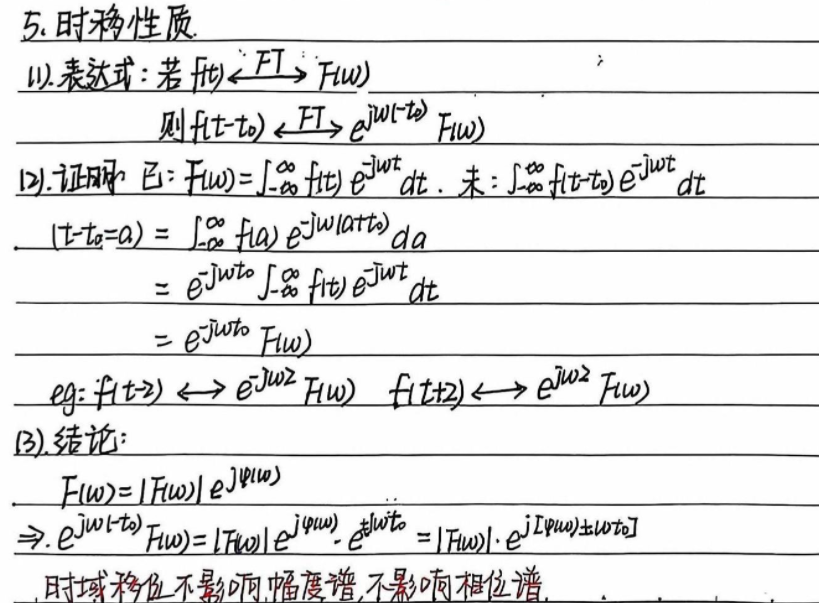 5. 时移性质
(1). 表达式: 若 f(t) ←FT→ F(ω)
则 f(t-t₀) ←FT→ e^{jω(-t₀)} F(ω)
(2). 证明: 已: F(ω) = ∫_{-∞}^{∞} f(t) e^{-jωt} dt . 未: ∫_{-∞}^{∞} f(t-t₀) e^{-jωt} dt
(t-t₀=a) = ∫_{-∞}^{∞} f(a) e^{-jω(a+t₀)} da
= e^{-jωt₀} ∫_{-∞}^{∞} f(t) e^{-jωt} dt
= e^{-jωt₀} F(ω)
eg: f(t-2) ↔ e^{-jω2} F(ω) f(t+2) ↔ e^{jω2} F(ω)
(3). 结论:
F(ω) = |F(ω)| e^{jφ(ω)}
⇒. e^{jω(-t₀)} F(ω) = |F(ω)| e^{jφ(ω)} · e^{±jωt₀} = |F(ω)| · e^{j[φ(ω)±ωt₀]}
时域移位不影响幅度谱,不影响相位谱.